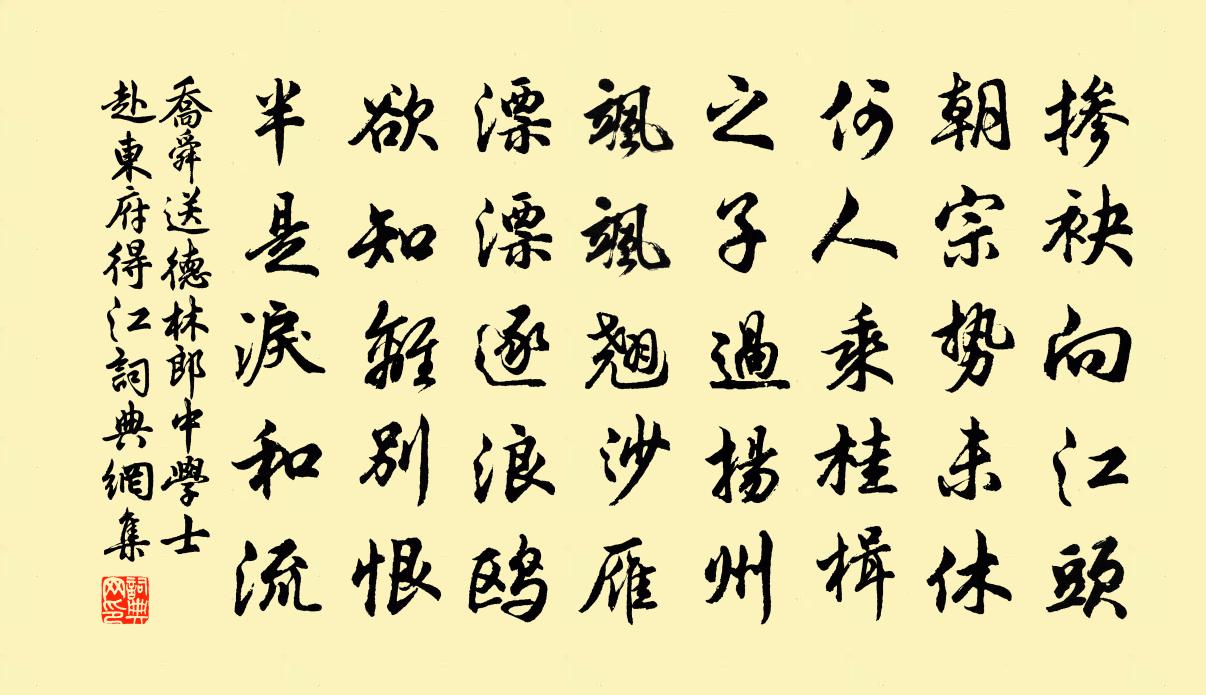 掺袂向江頭
朝宗势未休
何人乘桂楫
之子過揚州
颯颯翹沙雁
漂漂逐浪鸥
欲知離別恨
半是淚和流
喬舜送德林郎中學士
赴東府得江詞典網集
詞典
网印